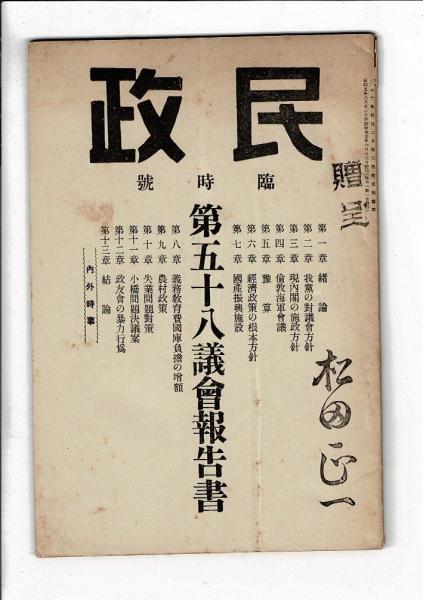 民政
臨時號
贈呈
松田正一
第一章 緒論
第二章 我黨の對議會方針
第三章 現内閣の施政方針
第四章 倫敦海軍會議
第五章 豫算
第六章 經濟政策の根本方針
第七章 國產振興施設
第五十八議會報告書
第八章 義務教育費國庫負擔の增額
第九章 農村政策
第十章 失業問題對策
第十一章 小橋問題決議案
第十二章 政友會の暴力行爲
第十三章 結論
内外時事